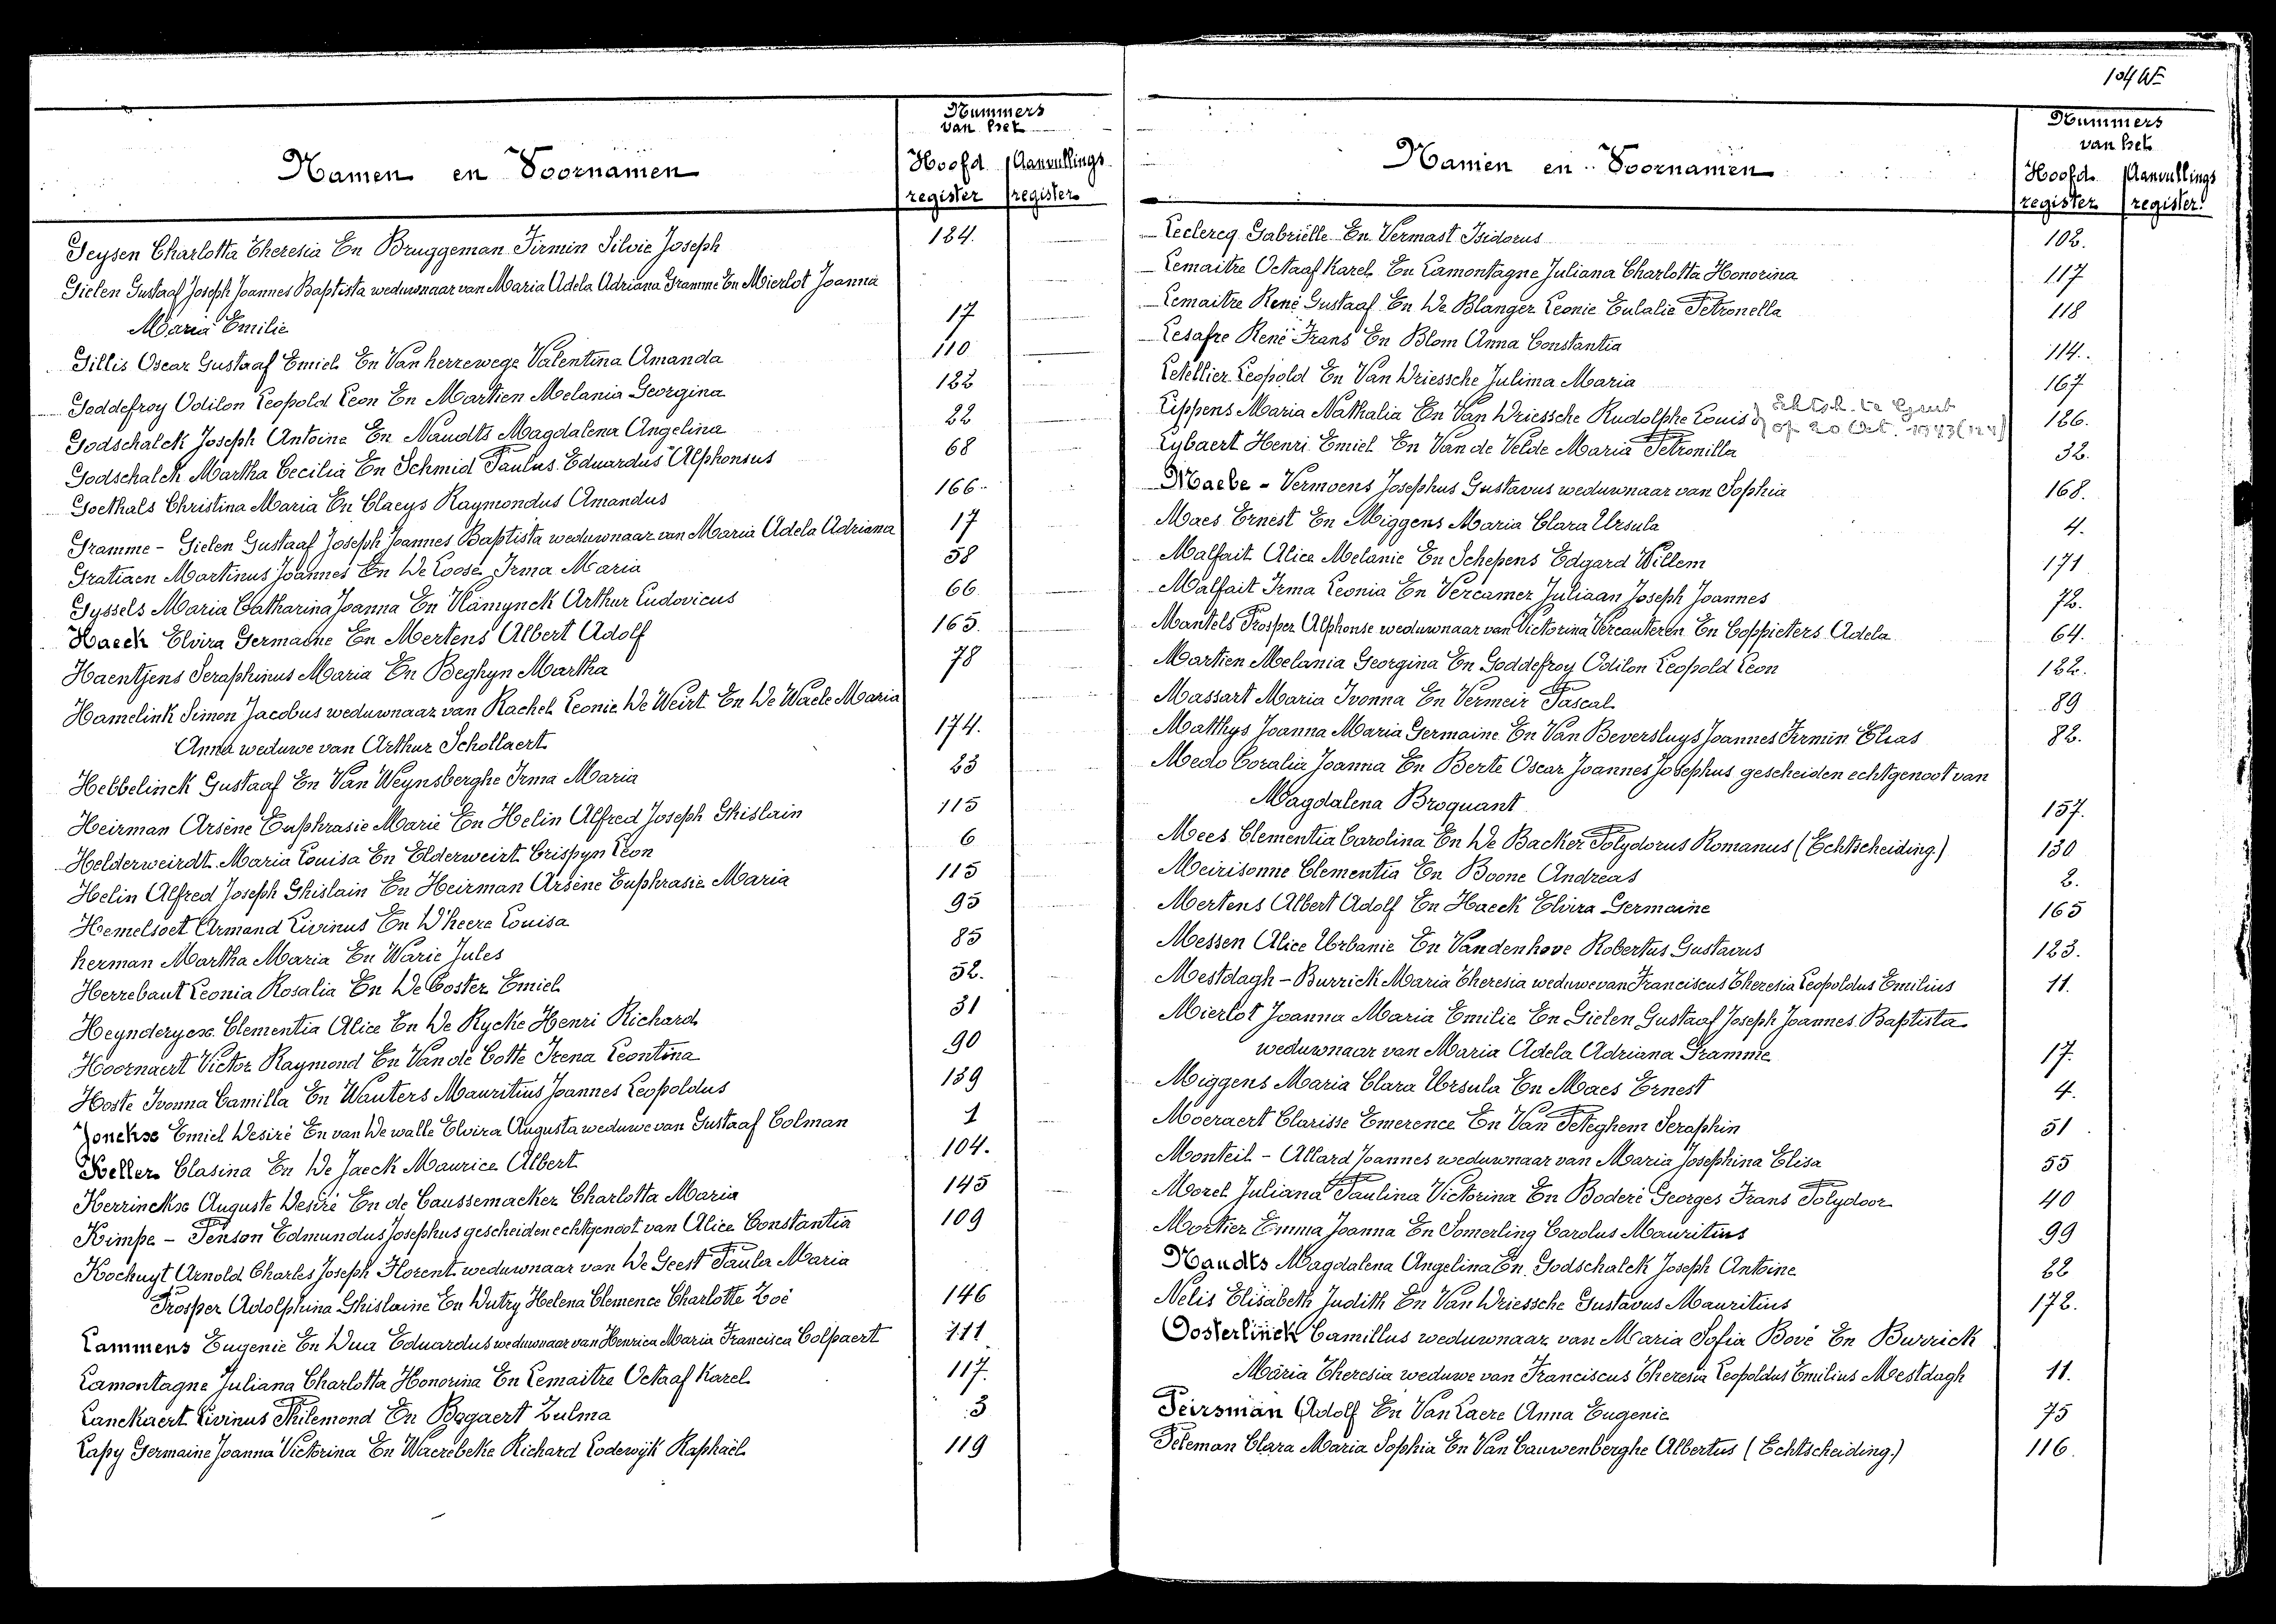 Nummers
van het
Namen en Voornamen
Hoofd register
Aanvullings register
Geysen Charlotta Theresia En Bruggeman Firmin Silvie Joseph 124.
Gielen Gustaaf Joseph Joannes Baptista weduwnaar van Maria Adela Adriana Gramme En Mierlot Joanna
Maria Emilie 17
Gillis Oscar Gustaaf Emiel En Van herrewege Valentina Amanda 110
Goddefroy Odilon Leopold Leon En Martien Melania Georgina 122
Godschalck Joseph Antoine En Naudts Magdalena Angelina 22
Godschalck Martha Cecilia En Schmid Paulus Eduardus Alphonsus 68
Goethals Christina Maria En Claeys Raymondus Amandus 166
Gramme - Gielen Gustaaf Joseph Joannes Baptista weduwnaar van Maria Adela Adriana 17
Gratiaen Martinus Joannes En De Loose Irma Maria 58
Gyssels Maria Catharina Joanna En Vlamynck Arthur Ludovicus 66
Haeck Elvira Germaine En Mertens Albert Adolf 165
Haentjens Seraphinus Maria En Beghyn Martha 78
Hamelink Simon Jacobus weduwnaar van Rachel Leonie De Weirt En De Waele Maria
Anna weduwe van Arthur Schollaert 174.
Hebbelinck Gustaaf En Van Weynsberghe Irma Maria 23
Heirman Arsène Euphrasie Marie En Helin Alfred Joseph Ghislain 115
Helderweirdt Maria Louisa En Elderweirt Crispyn Leon 6
Helin Alfred Joseph Ghislain En Heirman Arsène Euphrasie Maria 115
Hemelsoet Armand Livinus En D'heere Louisa 95
herman Martha Maria En Warie Jules 85
Herrebaut Leonia Rosalia En De Coster Emiel 52.
Heynderycx Clementia Alice En De Rycke Henri Richard 31
Hoornaert Victor Raymond En Van de Cotte Irena Leontina 90
Hoste Ivonna Camilla En Wauters Mauritius Joannes Leopoldus 139
Jonckxe Emiel Desiré En van De walle Elvira Augusta weduwe van Gustaaf Colman 1
Keller Clasina En De Jaeck Maurice Albert 104.
Kerrinckx Auguste Desiré En de Caussemacker Charlotta Maria 145
Kimpe - Penson Edmundus Josephus gescheiden echtgenoot van Alice Constantia 109
Kochuyt Arnold Charles Joseph Florent weduwnaar van De Geest Paula Maria
Prosper Adolphina Ghislaine En Dutry Helena Clemence Charlotte Zoé 146
Lammens Eugenie En Dua Eduardus weduwnaar van Henrica Maria Francisca Colpaert 111
Lamontagne Juliana Charlotta Honorina En Lemaitre Octaaf Karel 117.
Lanckaert Livinus Philemond En Bogaert Zulma 3
Lapy Germaine Joanna Victorina En Waerebeke Richard Lodewijk Raphaël 119
104
Nummers
van het
Namen en Voornamen
Hoofd register
Aanvullings register
Leclercq Gabriëlle En Vermast Isidorus 102.
Lemaitre Octaaf Karel En Lamontagne Juliana Charlotta Honorina 117
Lemaitre René Gustaaf En De Blanger Leonie Eulalie Petronella 118
Lesafre René Frans En Blom Anna Constantia 114.
Letellier Leopold En Van Driessche Julima Maria 167
Lippens Maria Nathalia En Van Driessche Rudolphe Louis 126.
Echtsch. te Gent
op 20 Oct. 1943
Lybaert Henri Emiel En Van de Velde Maria Petronilla 32.
Maebe - Vermoens Josephus Gustavus weduwnaar van Sophia 168.
Maes Ernest En Miggens Maria Clara Ursula 4.
Malfait Alice Melanie En Schepens Edgard Willem 171
Malfait Irma Leonia En Vercamer Juliaan Joseph Joannes 72.
Mantels Prosper Alphonse weduwnaar van Victorina Vercauteren En Coppieters Adela 64.
Martien Melania Georgina En Goddefroy Odilon Leopold Leon 122.
Massart Maria Ivonna En Vermeir Pascal 89
Matthys Joanna Maria Germaine En Van Beversluys Joannes Firmin Elias 82.
Medo Coralia Joanna En Berte Oscar Joannes Josephus gescheiden echtgenoot van
Magdalena Broquant 157.
Mees Clementia Carolina En De Backer Polydorus Romanus (Echtscheiding.) 130
Meirisonne Clementia En Boone Andreas 2.
Mertens Albert Adolf En Haeck Elvira Germaine 165
Messen Alice Urbanie En Vandenhove Robertus Gustavus 123.
Mestdagh - Burrick Maria Theresia weduwe van Franciscus Theresia Leopoldus Emilius 11.
Mierlot Joanna Maria Emilie En Gielen Gustaaf Joseph Joannes Baptista
weduwnaar van Maria Adela Adriana Gramme 17.
Miggens Maria Clara Ursula En Maes Ernest 4.
Moeraert Clarisse Emerence En Van Peteghem Seraphin 51
Monteil - Allard Joannes weduwnaar van Maria Josephina Elisa 55
Morel Juliana Paulina Victorina En Boderé Georges Frans Polydoor 40
Mortier Emma Joanna En Somerling Carolus Mauritius 99
Naudts Magdalena Angelina En Godschalck Joseph Antoine 22
Nelis Elisabeth Judith En Van Driessche Gustavus Mauritius 172.
Oosterlinck Camillus weduwnaar van Maria Sofia Bové En Burrick
Maria Theresia weduwe van Franciscus Theresia Leopoldus Emilius Mestdagh 11.
Peirsman Adolf En Van Laere Anna Eugenie 75
Peleman Clara Maria Sophia En Van Cauwenberghe Albertus (Echtscheiding.) 116.